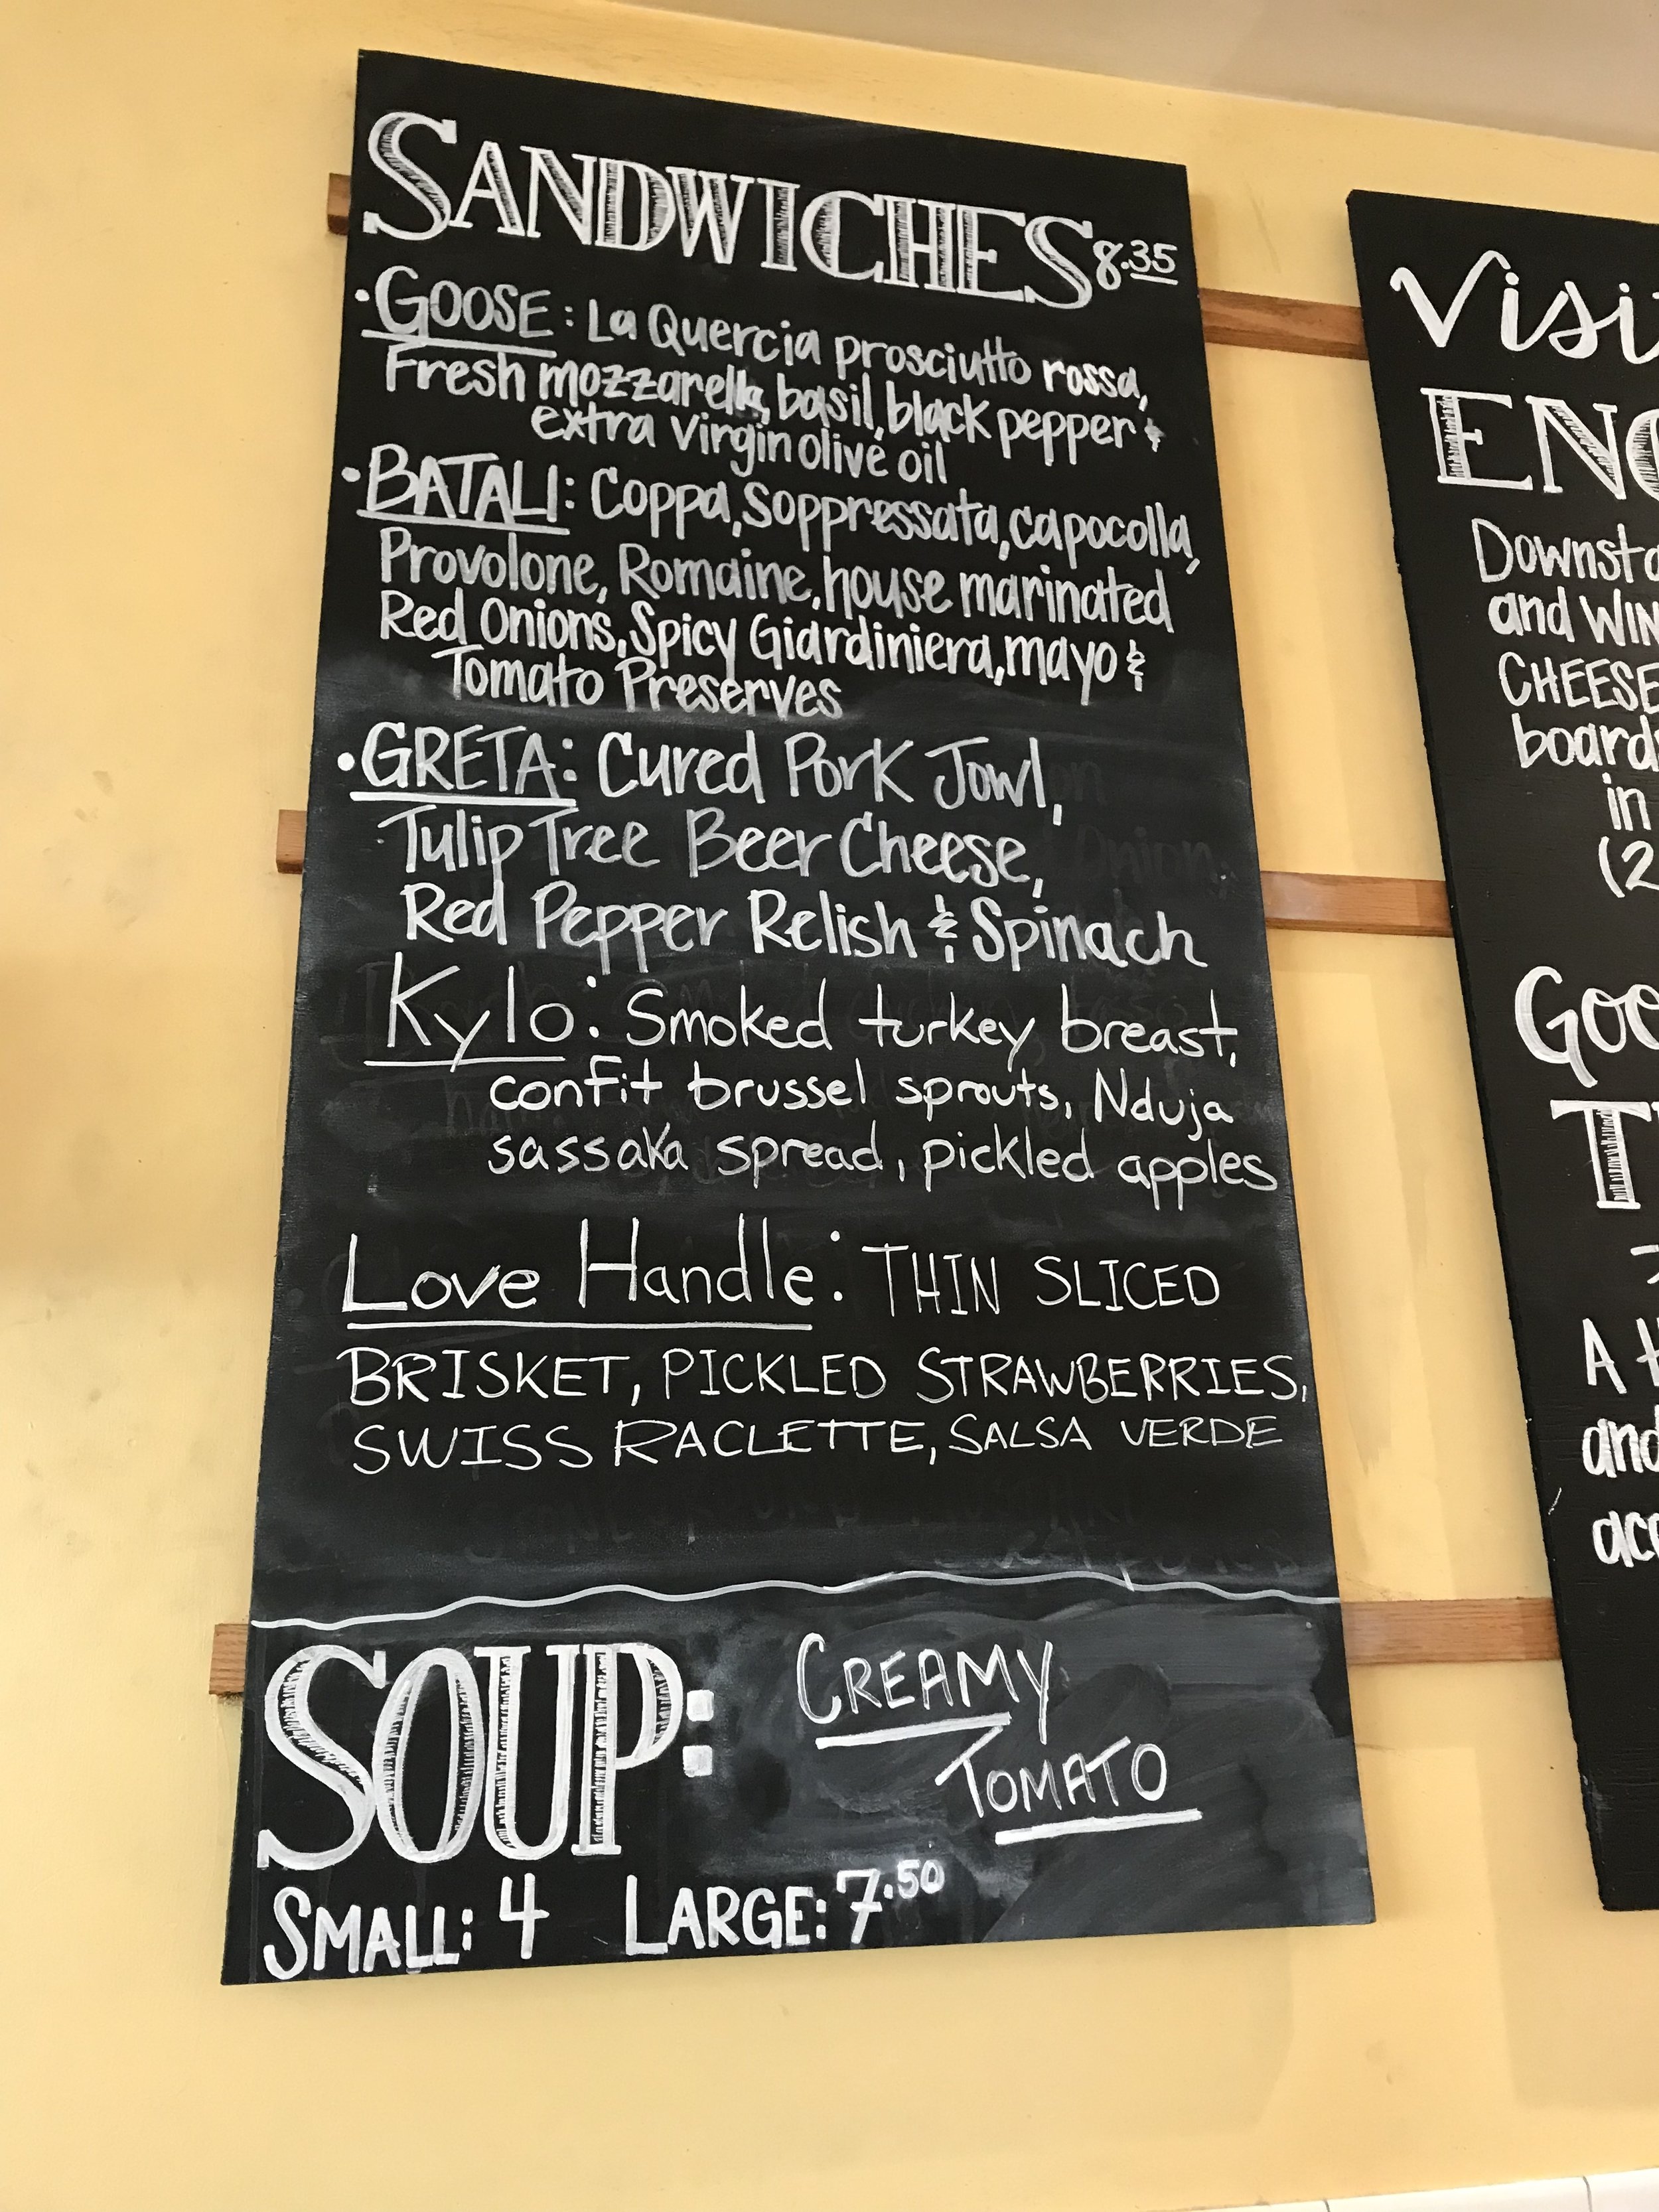 SANDWICHES 8.35
• GOOSE: La Quercia prosciutto rossa,
Fresh mozzarella, basil, black pepper &
extra virgin olive oil
• BATALI: Coppa, Soppressata, capocolla,
Provolone, Romaine, house marinated
Red Onions, Spicy Giardiniera, mayo &
Tomato Preserves
• GRETA: Cured Pork Jowl,
Tulip Tree Beer Cheese,
Red Pepper Relish & Spinach
Kylo: Smoked turkey breast,
confit brussel sprouts, Nduja
sassaka spread, pickled apples
Love Handle: THIN SLICED
BRISKET, PICKLED STRAWBERRIES,
SWISS RACLETTE, SALSA VERDE
SOUP: CREAMY
TOMATO
SMALL: 4 LARGE: 7.50
Visi
EN
Downst
and WIN
CHEESE
board
in
(2
Goo
T
A
and
acc